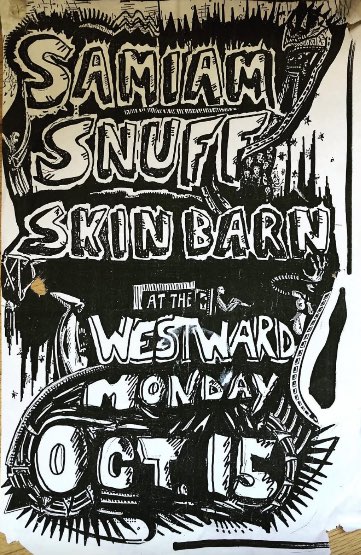 SAMIAM
SNUFF
SKIN BARN
AT THE
WESTWARD
MONDAY
OCT. 15